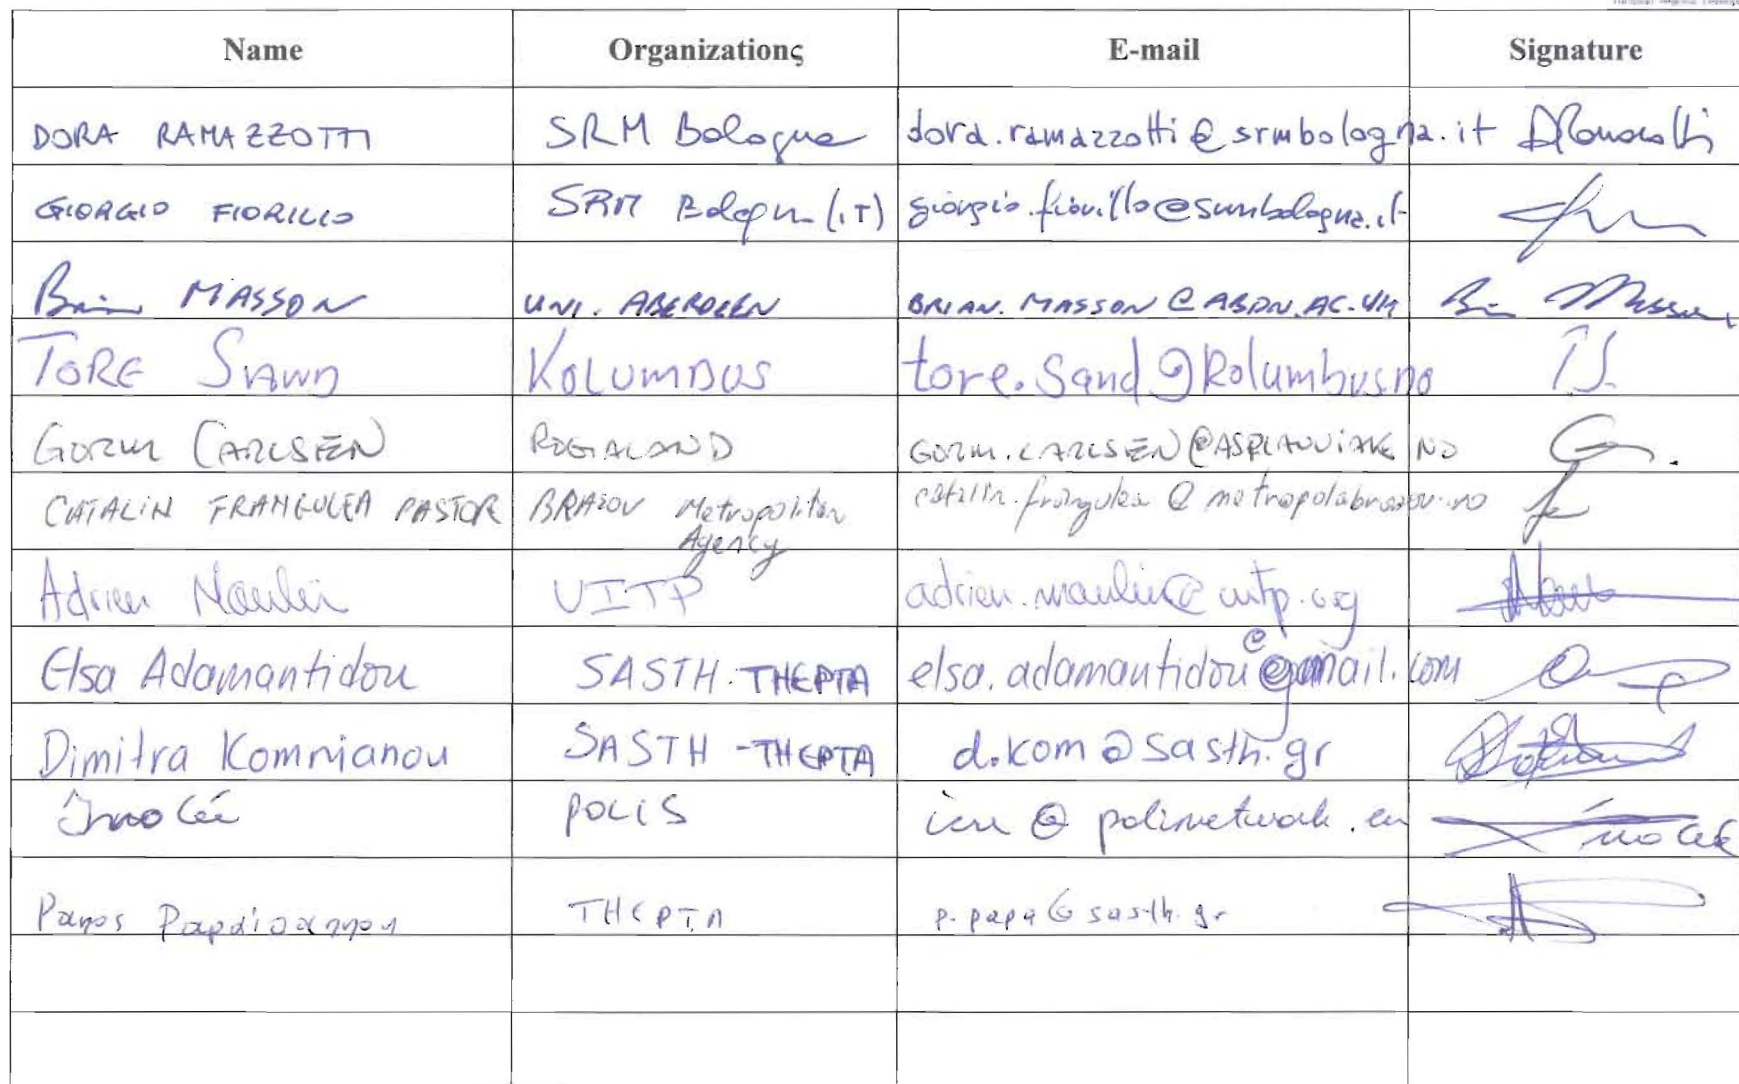 Name Organizationς E-mail Signature
DORA RAMAZZOTTI SRM Bologna dora.ramazzotti@srmbologna.it DRamazzotti
GIORGIO FIORILLO SRM Bologna (IT) giorgio.fiorillo@srmbologna.it
Brian MASSON UNI. ABERDEEN BRIAN.MASSON@ABDN.AC.UK Brian Masson
TORE SAND KOLUMBUS tore.sand@kolumbus.no T.S.
GORM CARLSEN ROGALAND GORM.CARLSEN@ASPLANVIAK NO
CATALIN FRANGULEA PASTOR BRASOV Metropolitan catalin.frangulea@metropolabrasov.ro
Agency
Adrien Maulin UITP adrien.maulin@uitp.org
@
Elsa Adamantidou SASTH-THEPTA elsa.adamantidou@gmail.com
Dimitra Komnianou SASTH-THEPTA d.kom@sasth.gr
Ivo Cré POLIS icre@polisnetwork.eu Ivo Cré
Panos Papaioannou THEPTA p.papa@sasth.gr